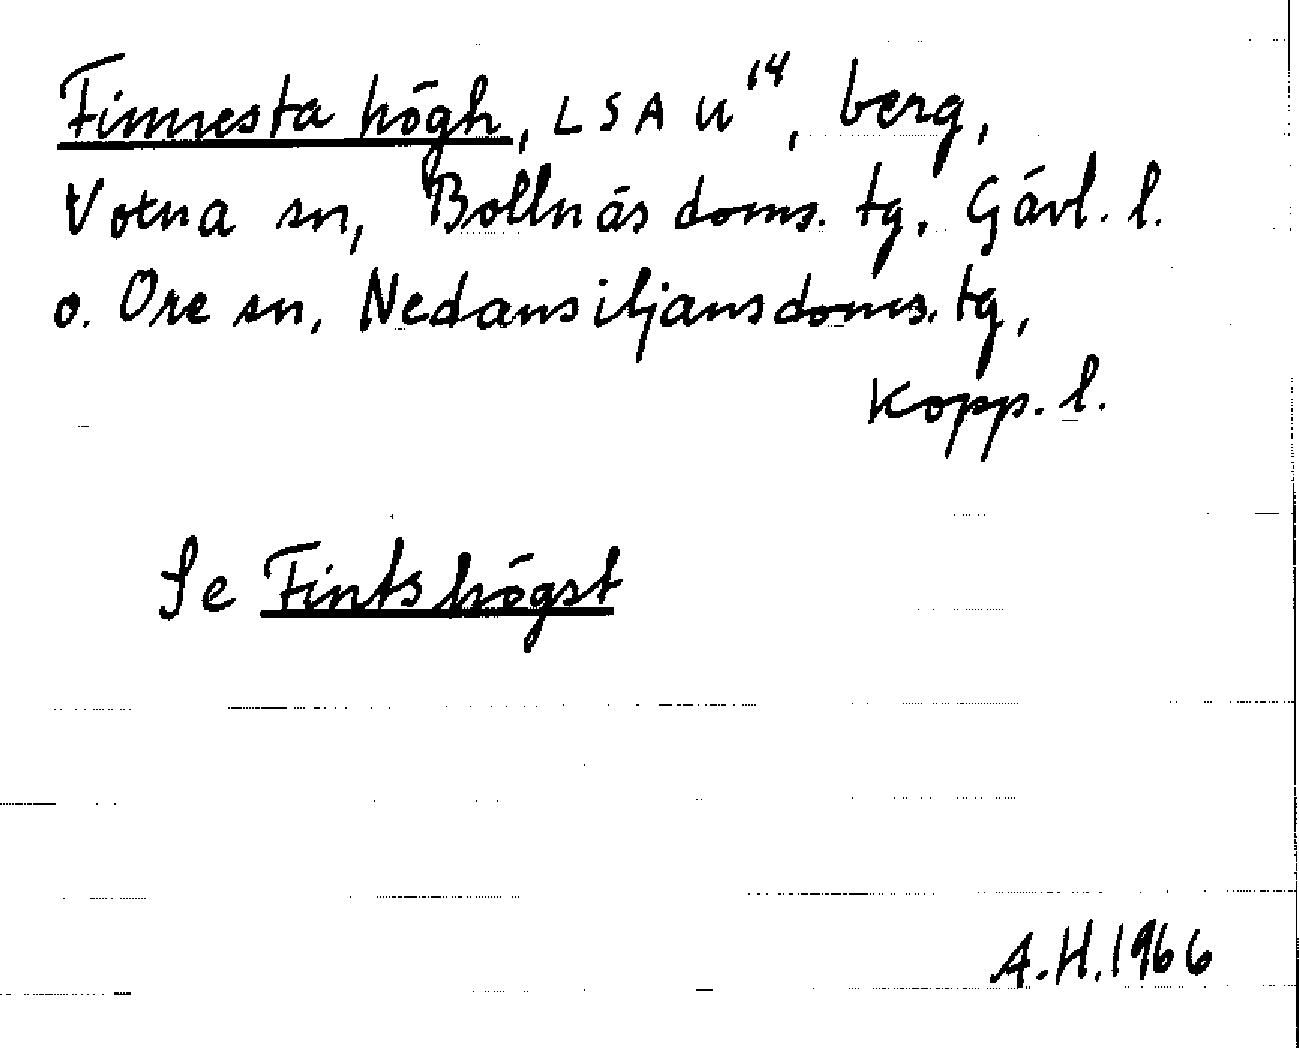 Finnesta högh, LSA U¹⁴, berg,
Votna sn, Bollnäs doms. tg. Gävl. l.
o. Ore sn, Nedansiljans doms. tg,
Kopp. l.
Se Fintshögst
A.H. 1966